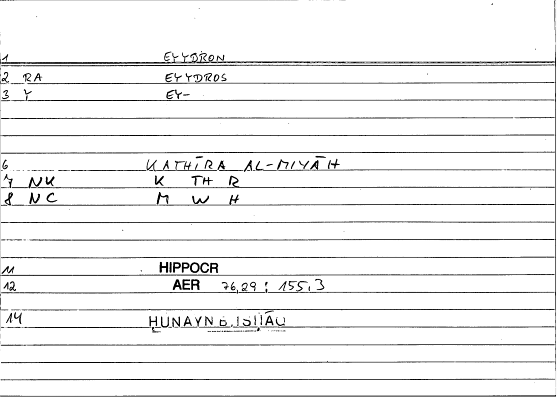 1 EYYDRON
2 RA EYYDROS
3 Y EY-
6 KATHĪRA AL-MIYĀH
7 NK K TH R
8 NC M W H
11 HIPPOCR
12 AER 76,29 : 155,3
14 ḤUNAYN B.